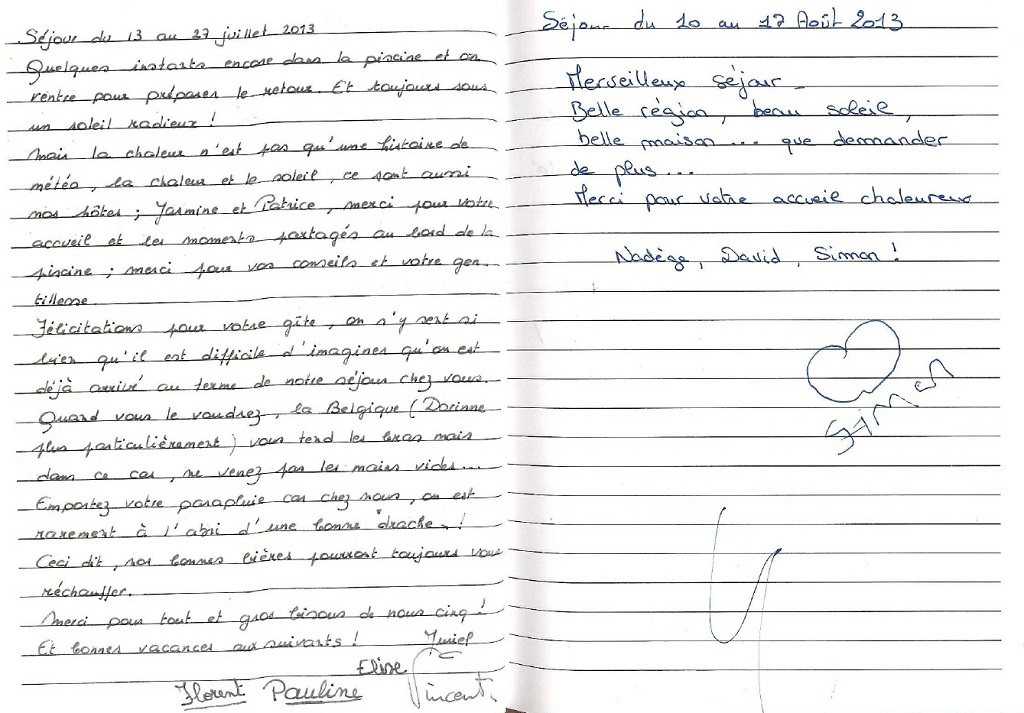 Séjour du 13 au 27 juillet 2013
Quelques instants encore dans la piscine et on
rentre pour préparer le retour. Et toujours sous
un soleil radieux !
Mais la chaleur n'est pas qu'une histoire de
météo, la chaleur et le soleil, ce sont aussi
nos hôtes ; Yasmine et Patrice, merci pour votre
accueil et les moments partagés au bord de la
piscine ; merci pour vos conseils et votre gen-
tillesse.
Félicitations pour votre gîte, on s'y sent si
bien qu'il est difficile d'imaginer qu'on est
déjà arrivé au terme de notre séjour chez vous.
Quand vous le voudrez, la Belgique (Dorinne
plus particulièrement) vous tend les bras mais
dans ce cas, ne venez pas les mains vides...
Emportez votre parapluie car chez nous, on est
rarement à l'abri d'une bonne "drache" !
Ceci dit, nos bonnes bières pourront toujours vous
réchauffer.
Merci pour tout et gros bisous de nous cinq !
Et bonnes vacances aux suivants !
Elise
Florent Pauline Vincent.
Séjour du 10 au 17 Août 2013
Merveilleux séjour -
Belle région, beau soleil,
belle maison ... que demander
de plus ...
Merci pour votre accueil chaleureux
Nadège, David, Simon !
SiMon